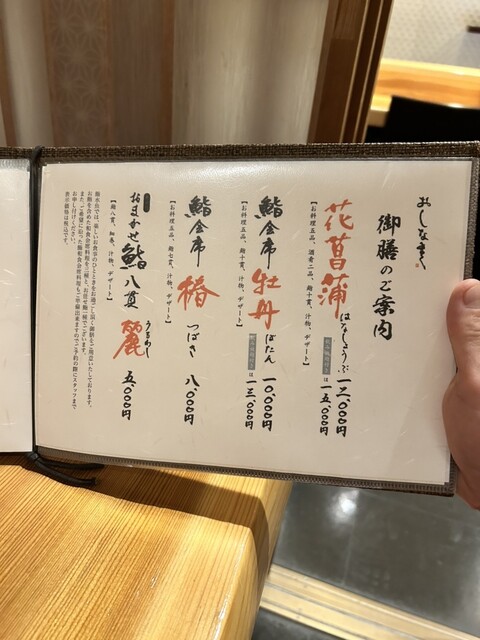 おしながき
御膳のご案内
花菖蒲 はなしょうぶ 一二、〇〇〇円
は 一五、〇〇〇円
【お料理五品、酒肴二品、鮨十貫、汁物、デザート】
鮨会席 牡丹 ぼたん 一〇、〇〇〇円
は 一三、〇〇〇円
【お料理五品、鮨十貫、汁物、デザート】
鮨会席 椿 つばき 八、〇〇〇円
【お料理五品、鮨七貫、汁物、デザート】
おまかせ鮨八貫 麗 うるわし 五、〇〇〇円
【鮨八貫、細巻、汁物、デザート】
お申し付けください。
表示価格は税込です。